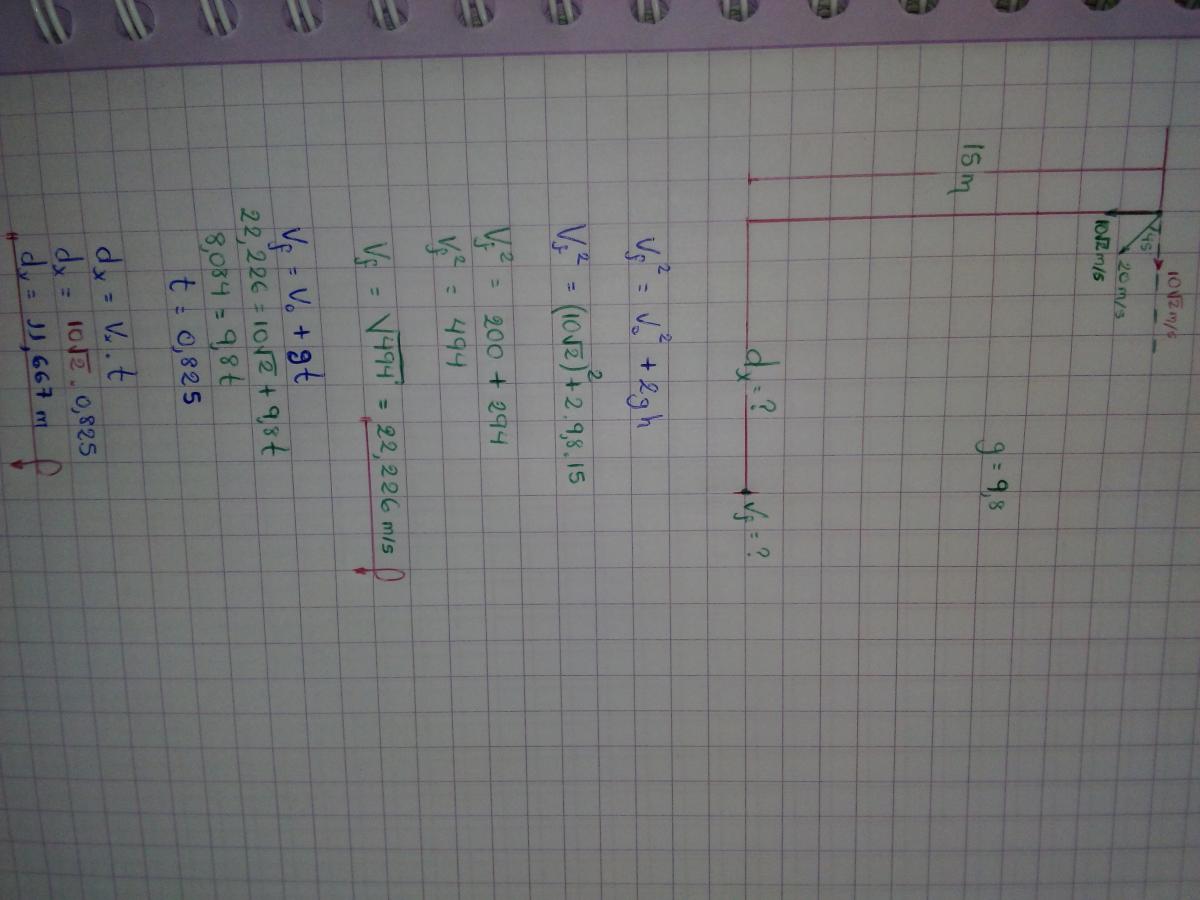 10√2 m/s
45°
20 m/s
10√2 m/s
g = 9,8
15 m
dx = ?
Vf = ?
Vf² = Vo² + 2gh
Vf² = (10√2)² + 2.9,8.15
Vf² = 200 + 294
Vf² = 494
Vf = √494 = 22,226 m/s
Vf = Vo + gt
22,226 = 10√2 + 9,8t
8,084 = 9,8t
t = 0,825
dx = Vx . t
dx = 10√2 . 0,825
dx = 11,667 m